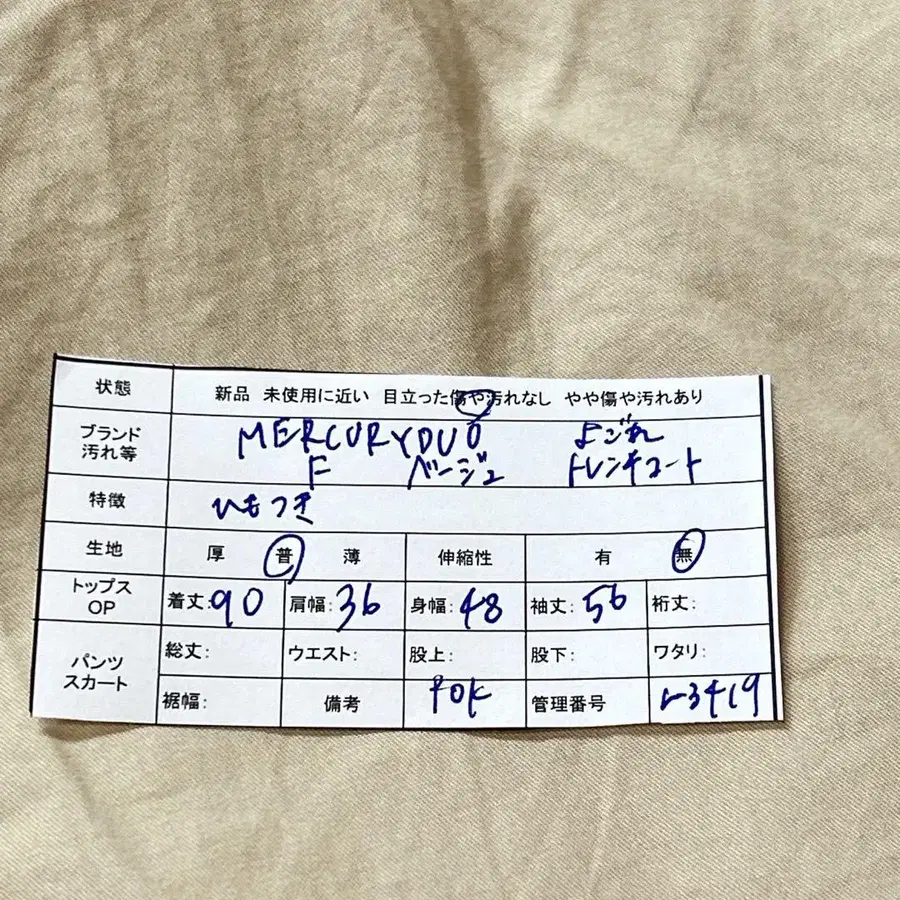 状態 新品 未使用に近い 目立った傷や汚れなし やや傷や汚れあり
ブランド 汚れ等 MERCURYDUO よごれ
F ベージュ トレンチコート
特徴 ひもつき
生地 厚 普 薄 伸縮性 有 無
トップス OP 着丈:90 肩幅:36 身幅:48 袖丈:56 裄丈:
パンツ スカート 総丈: ウエスト: 股上: 股下: ワタリ:
裾幅: 備考 管理番号